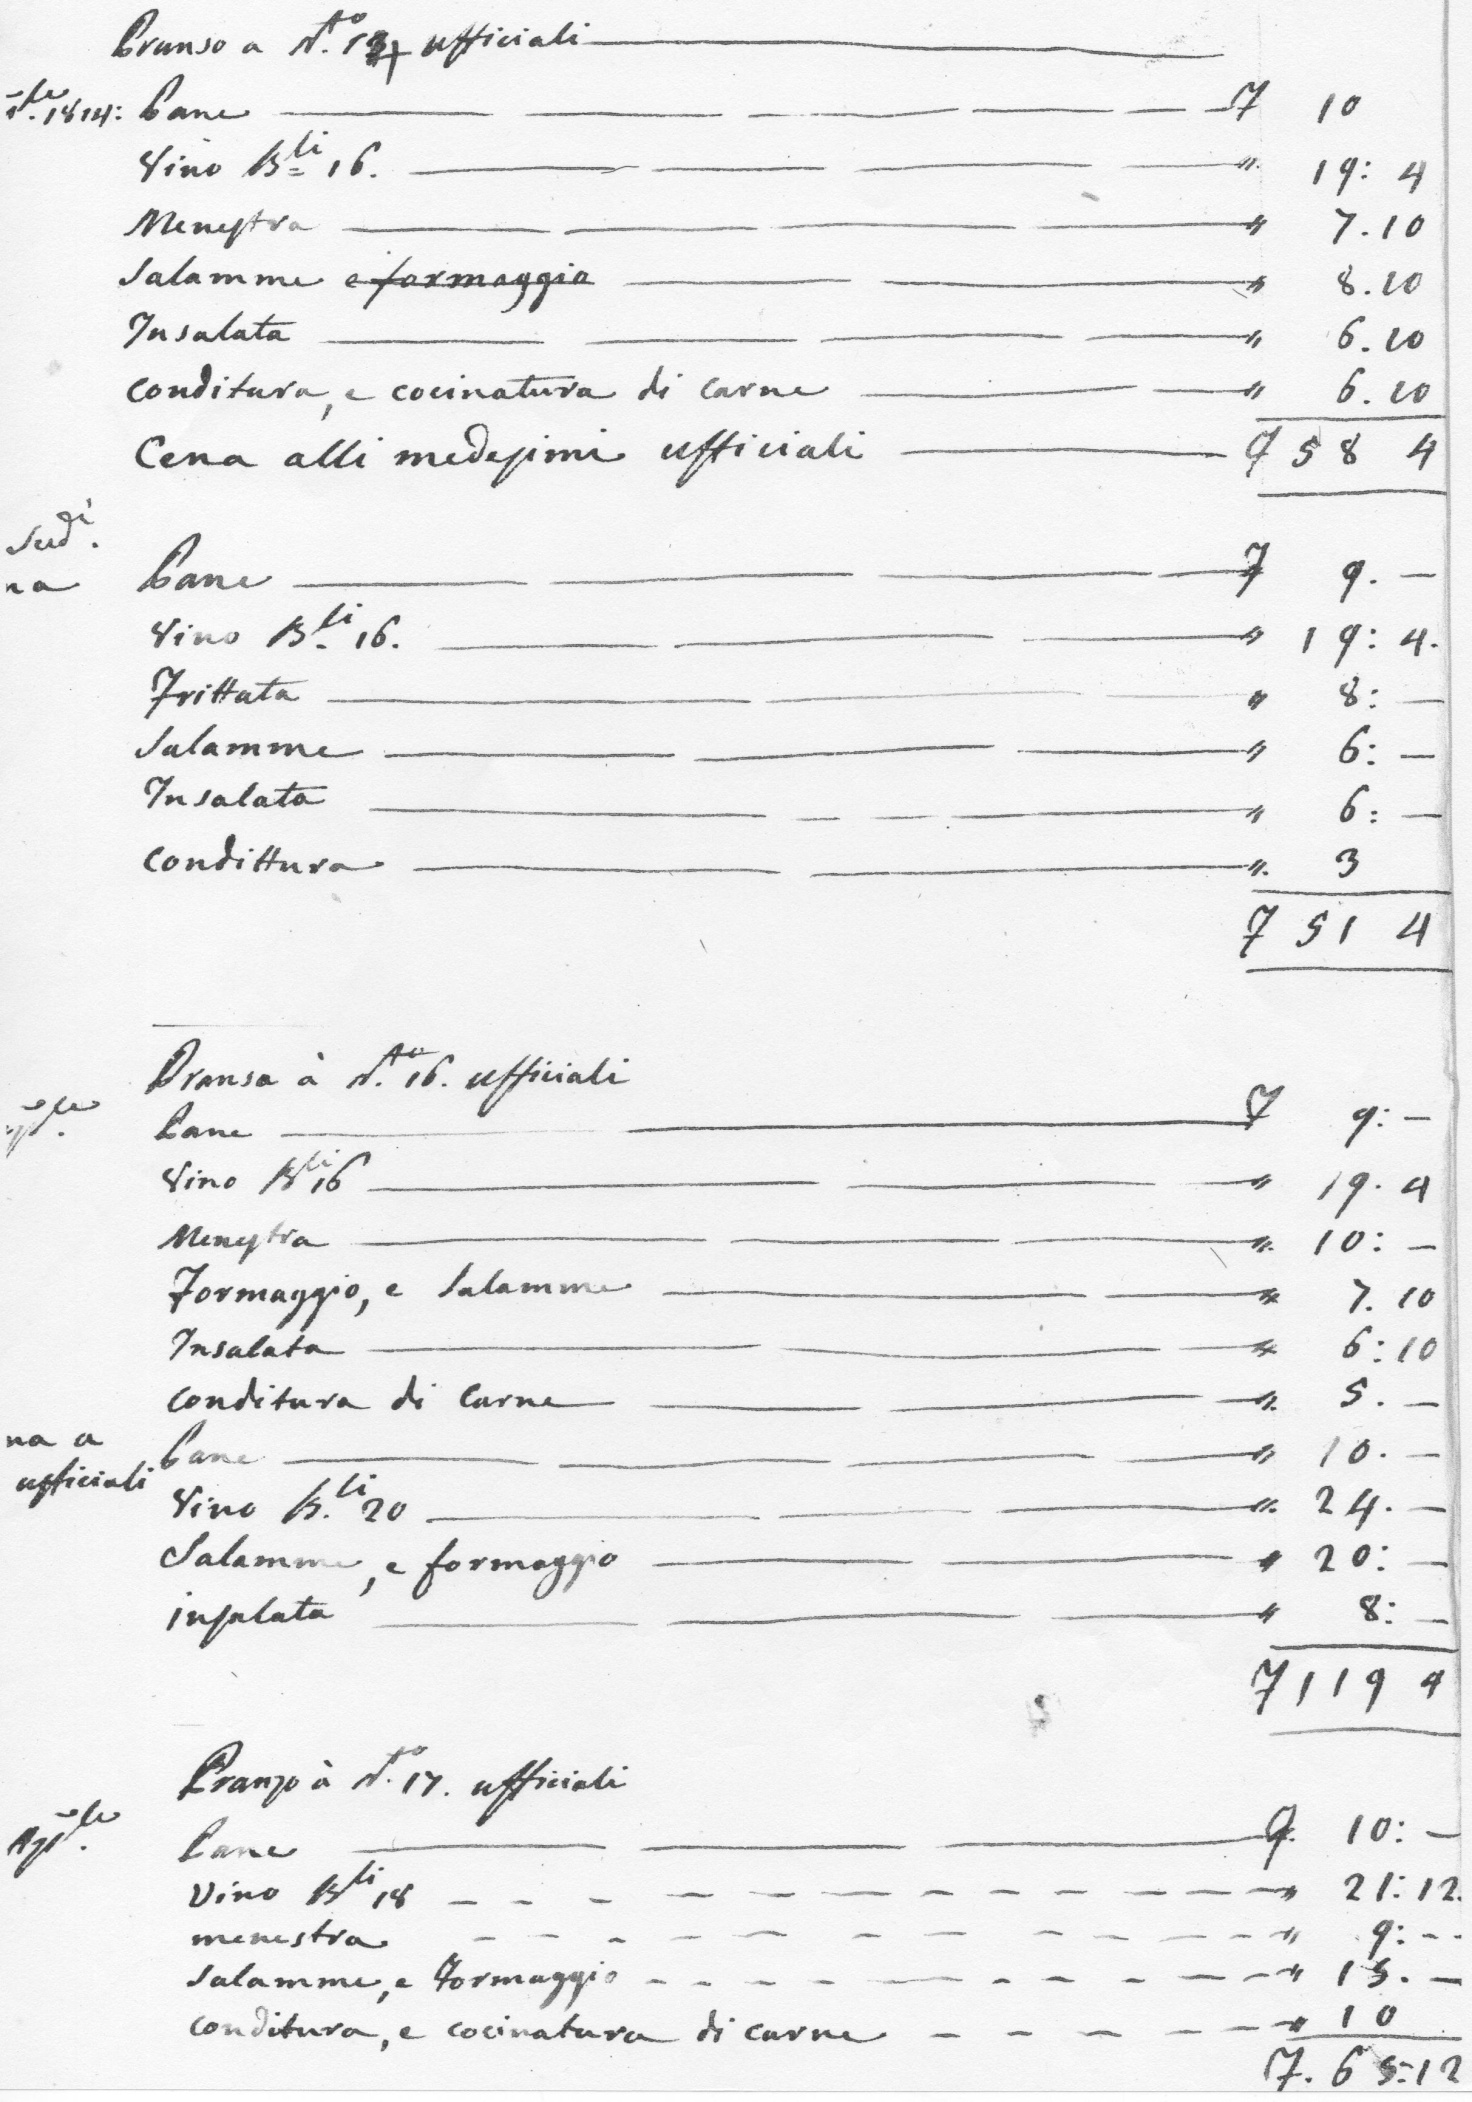 Pranso a N.to 14 ufficiali
1814: Pane 7 10
Vino B.li 16. " 19: 4
Menestra " 7.10
Salamme e formaggio " 8.10
Insalata " 6.10
conditura, e cocinatura di carne " 6.10
Cena alli medesimi ufficiali 7 58 4
Sud.i
na Pane 7 9. —
Vino B.li 16. " 19: 4.
Frittata " 8: —
Salamme " 6: —
Insalata " 6: —
condittura ". 3
7 51 4
Pranso à N.to 16. ufficiali
Pane 7 9: —
Vino B.li 16 " 19. 4
Menestra ". 10: —
Formaggio, e Salamme " 7. 10
Insalata " 6: 10
conditura di Carne ". 5. —
na a
ufficiali
Pane " 10. —
Vino B.li 20 ". 24. —
Salamme, e formaggio " 20: —
insalata " 8: —
7 119 4
Pranzo à N.to 17. ufficiali
Ap.le Pane 7. 10: —
Vino B.li 18 " 21: 12.
menestra " 9: --
Salamme, e Formaggio " 15. —
conditura, e cocinatura di carne " 10
7. 65:12